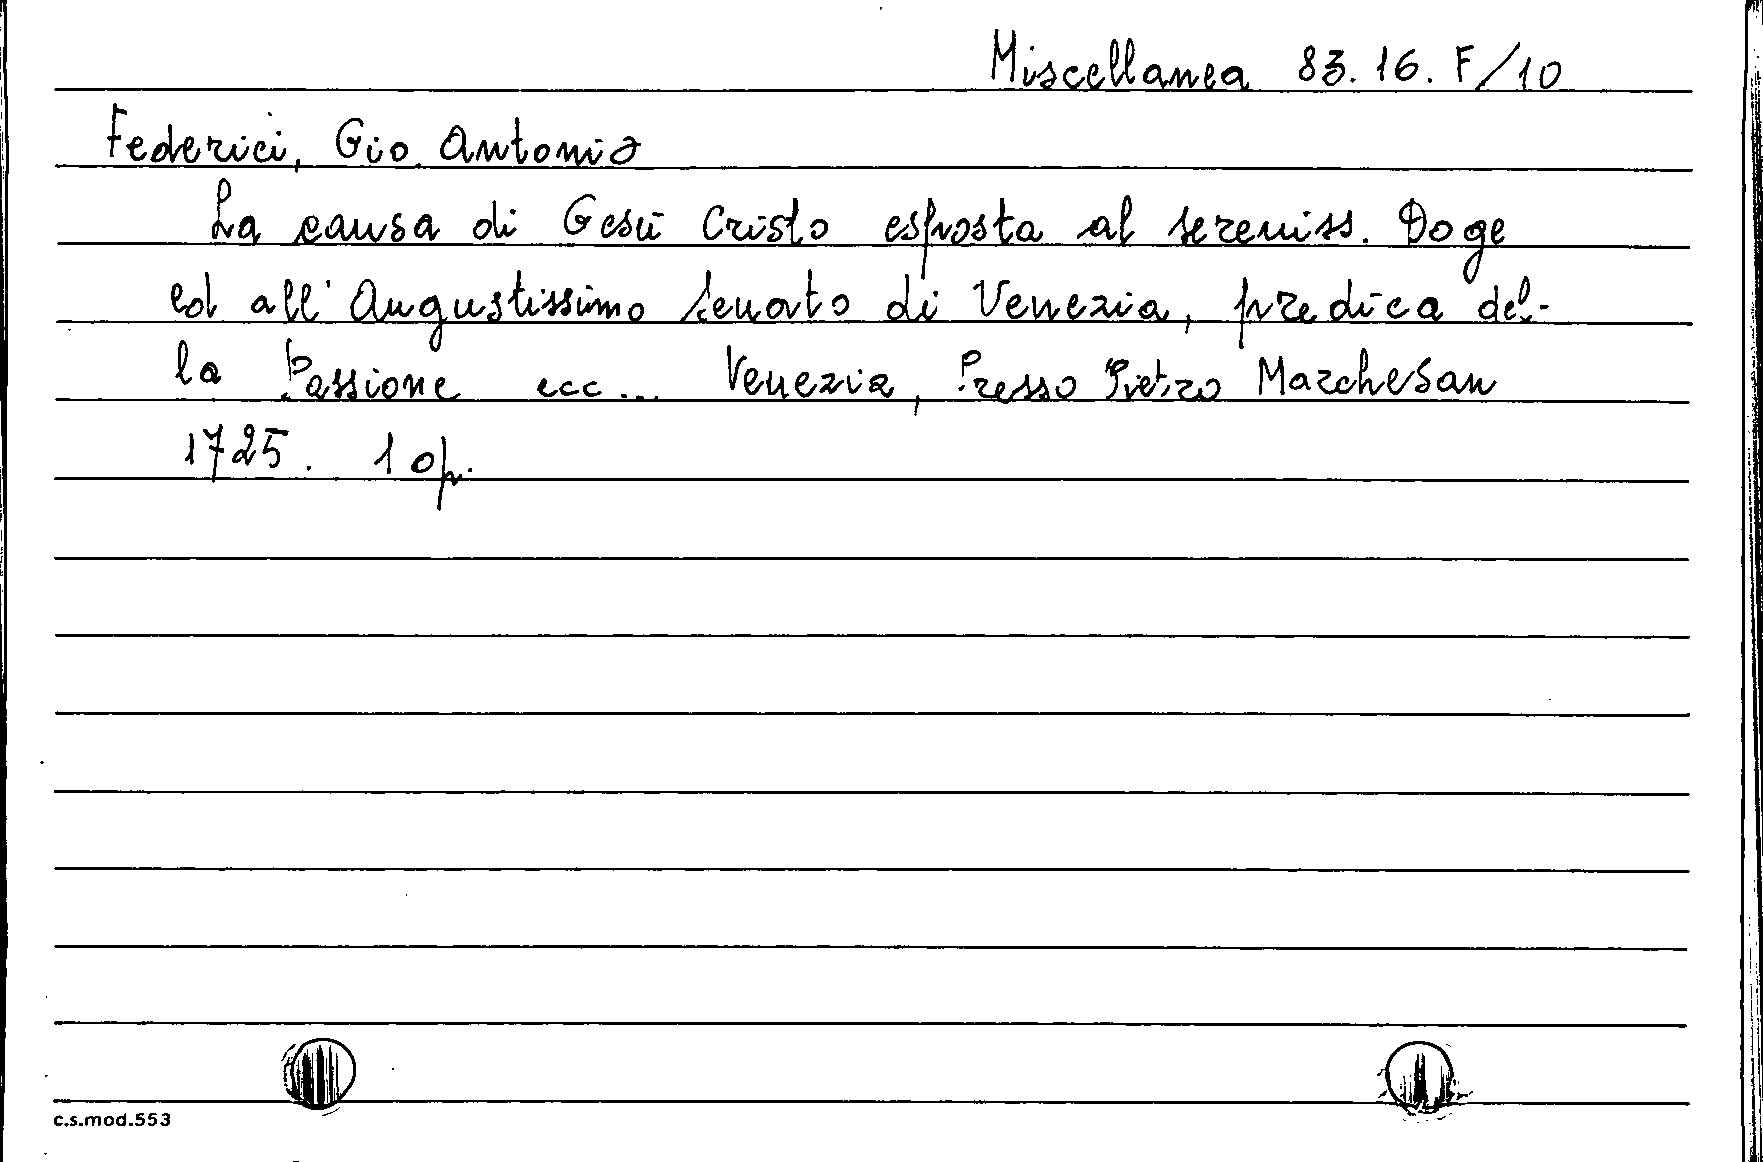 Miscellanea 83.16.F/10
Federici, Gio. Antonio
La causa di Gesù Cristo esposta al sereniss. Doge
ed all'Augustissimo Senato di Venezia, predica del-
la Passione ecc... Venezia, Presso Pietro Marchesan
1725. 1 op.
c.s.mod.553